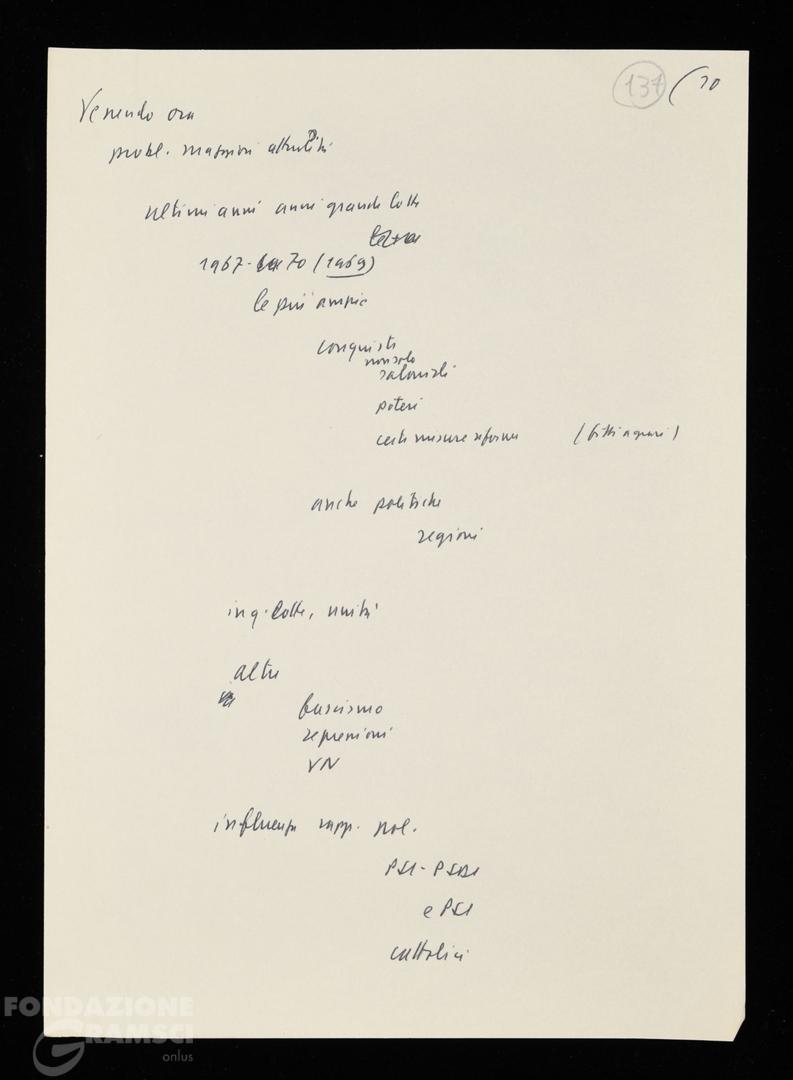 137 (10
Venendo ora
probl. maggiori attualità
ultimi anni anni grandi lotte
1967-70 (1969)
le più ampie
conquiste
non solo
salariali
poteri
certe misure riforma (fitti agrari)
anche politiche
regioni
in q. lotte, unità
altre
fascismo
repressioni
VN
influenza rapp. pol.
PSI-PSDI
e PSI
cattolici
FONDAZIONE
GRAMSCI
onlus